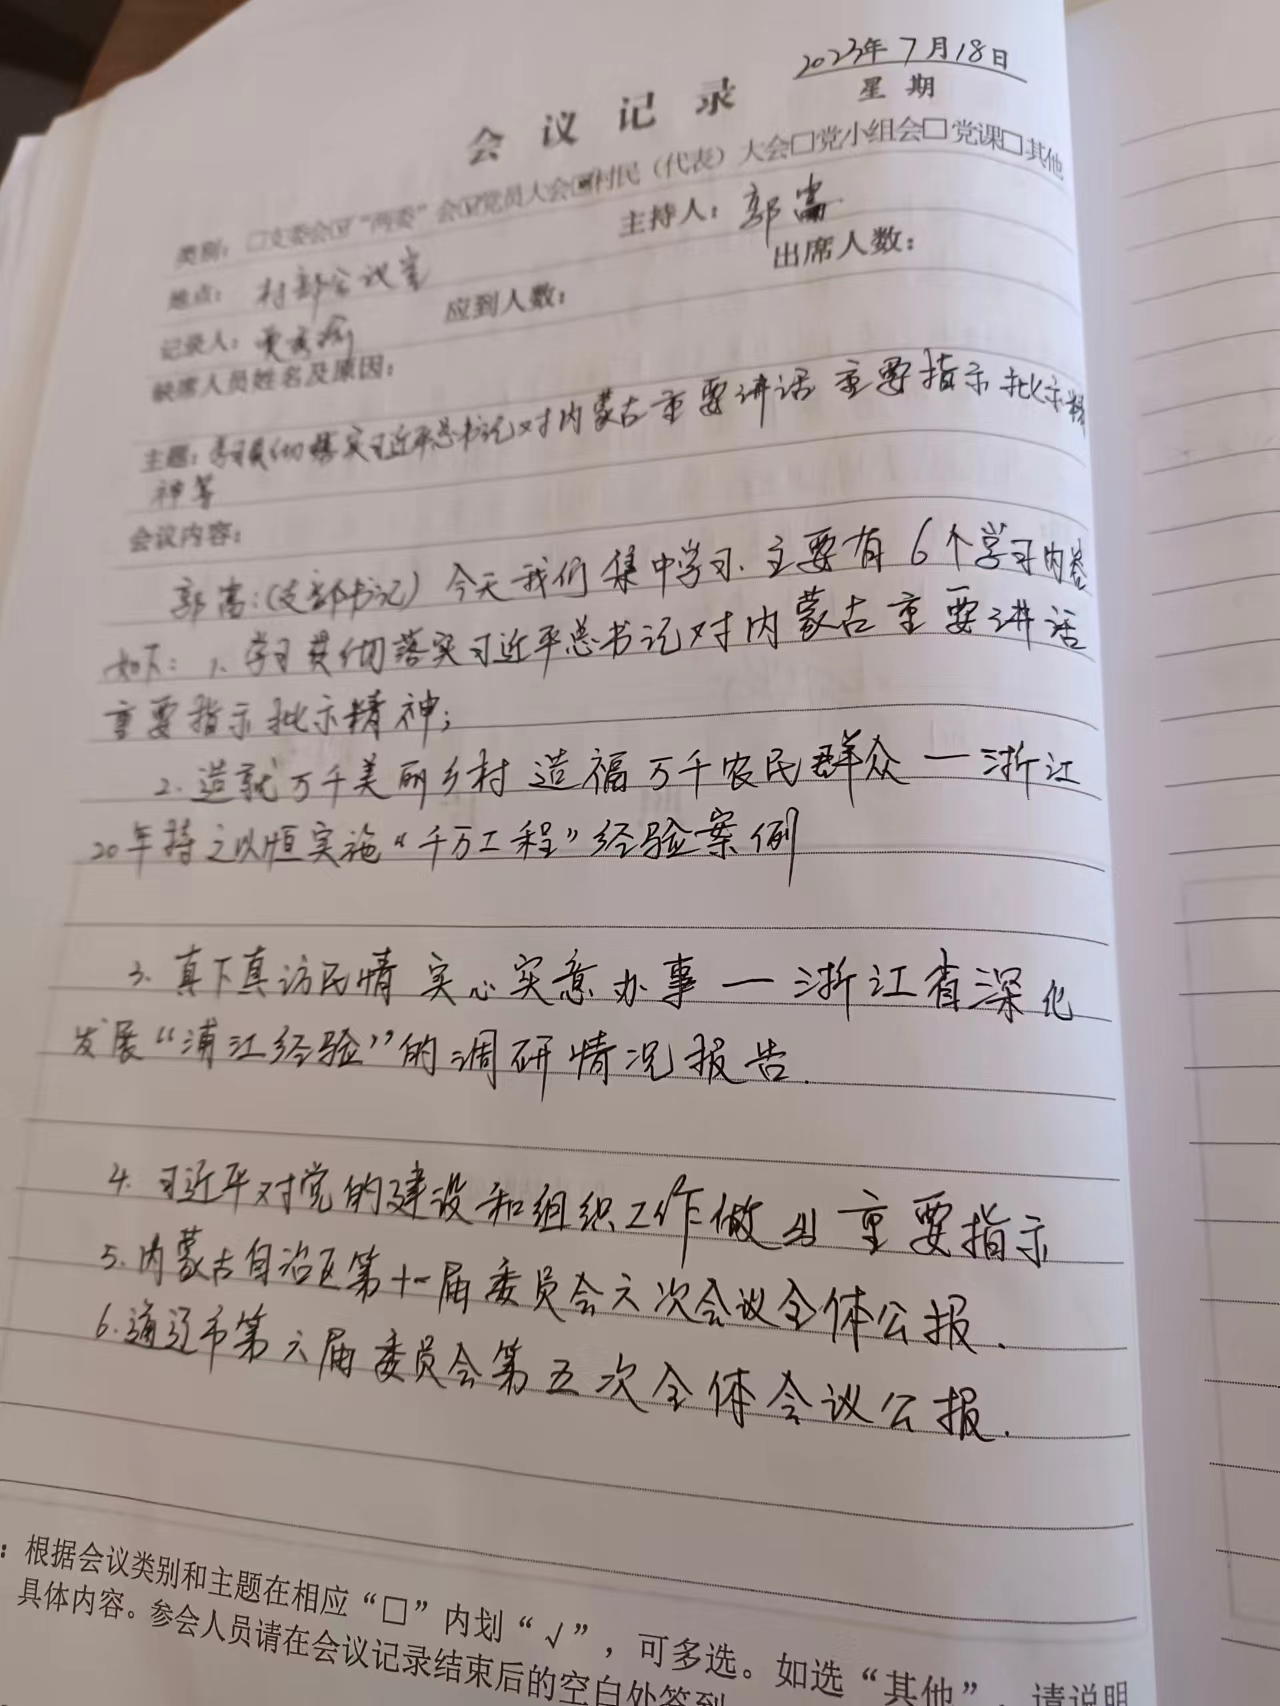 2023年7月18日
星 期
会 议 记 录
类别：□支委会☑“两委”会☑党员大会☑村民（代表）大会□党小组会□党课□其他
地点：村部会议室 主持人：郭富
记录人： 应到人数： 出席人数：
缺席人员姓名及原因：
主题：学习贯彻落实习近平总书记对内蒙古重要讲话重要指示批示精
神等
会议内容：
郭富：(支部书记) 今天我们集中学习.主要有6个学习内容
如下：1、学习贯彻落实习近平总书记对内蒙古重要讲话
重要指示批示精神；
2.造就万千美丽乡村 造福万千农民群众一浙江
20年持之以恒实施“千万工程”经验案例
3.真下真访民情 实心实意办事一浙江省深化
发展“浦江经验”的调研情况报告.
4.习近平对党的建设和组织工作做出重要指示
5.内蒙古自治区第十一届委员会六次会议全体公报.
6.通辽市第六届委员会第五次全体会议公报.
：根据会议类别和主题在相应“□”内划“√”，可多选。如选“其他”，请说明
具体内容。参会人员请在会议记录结束后的空白处签到